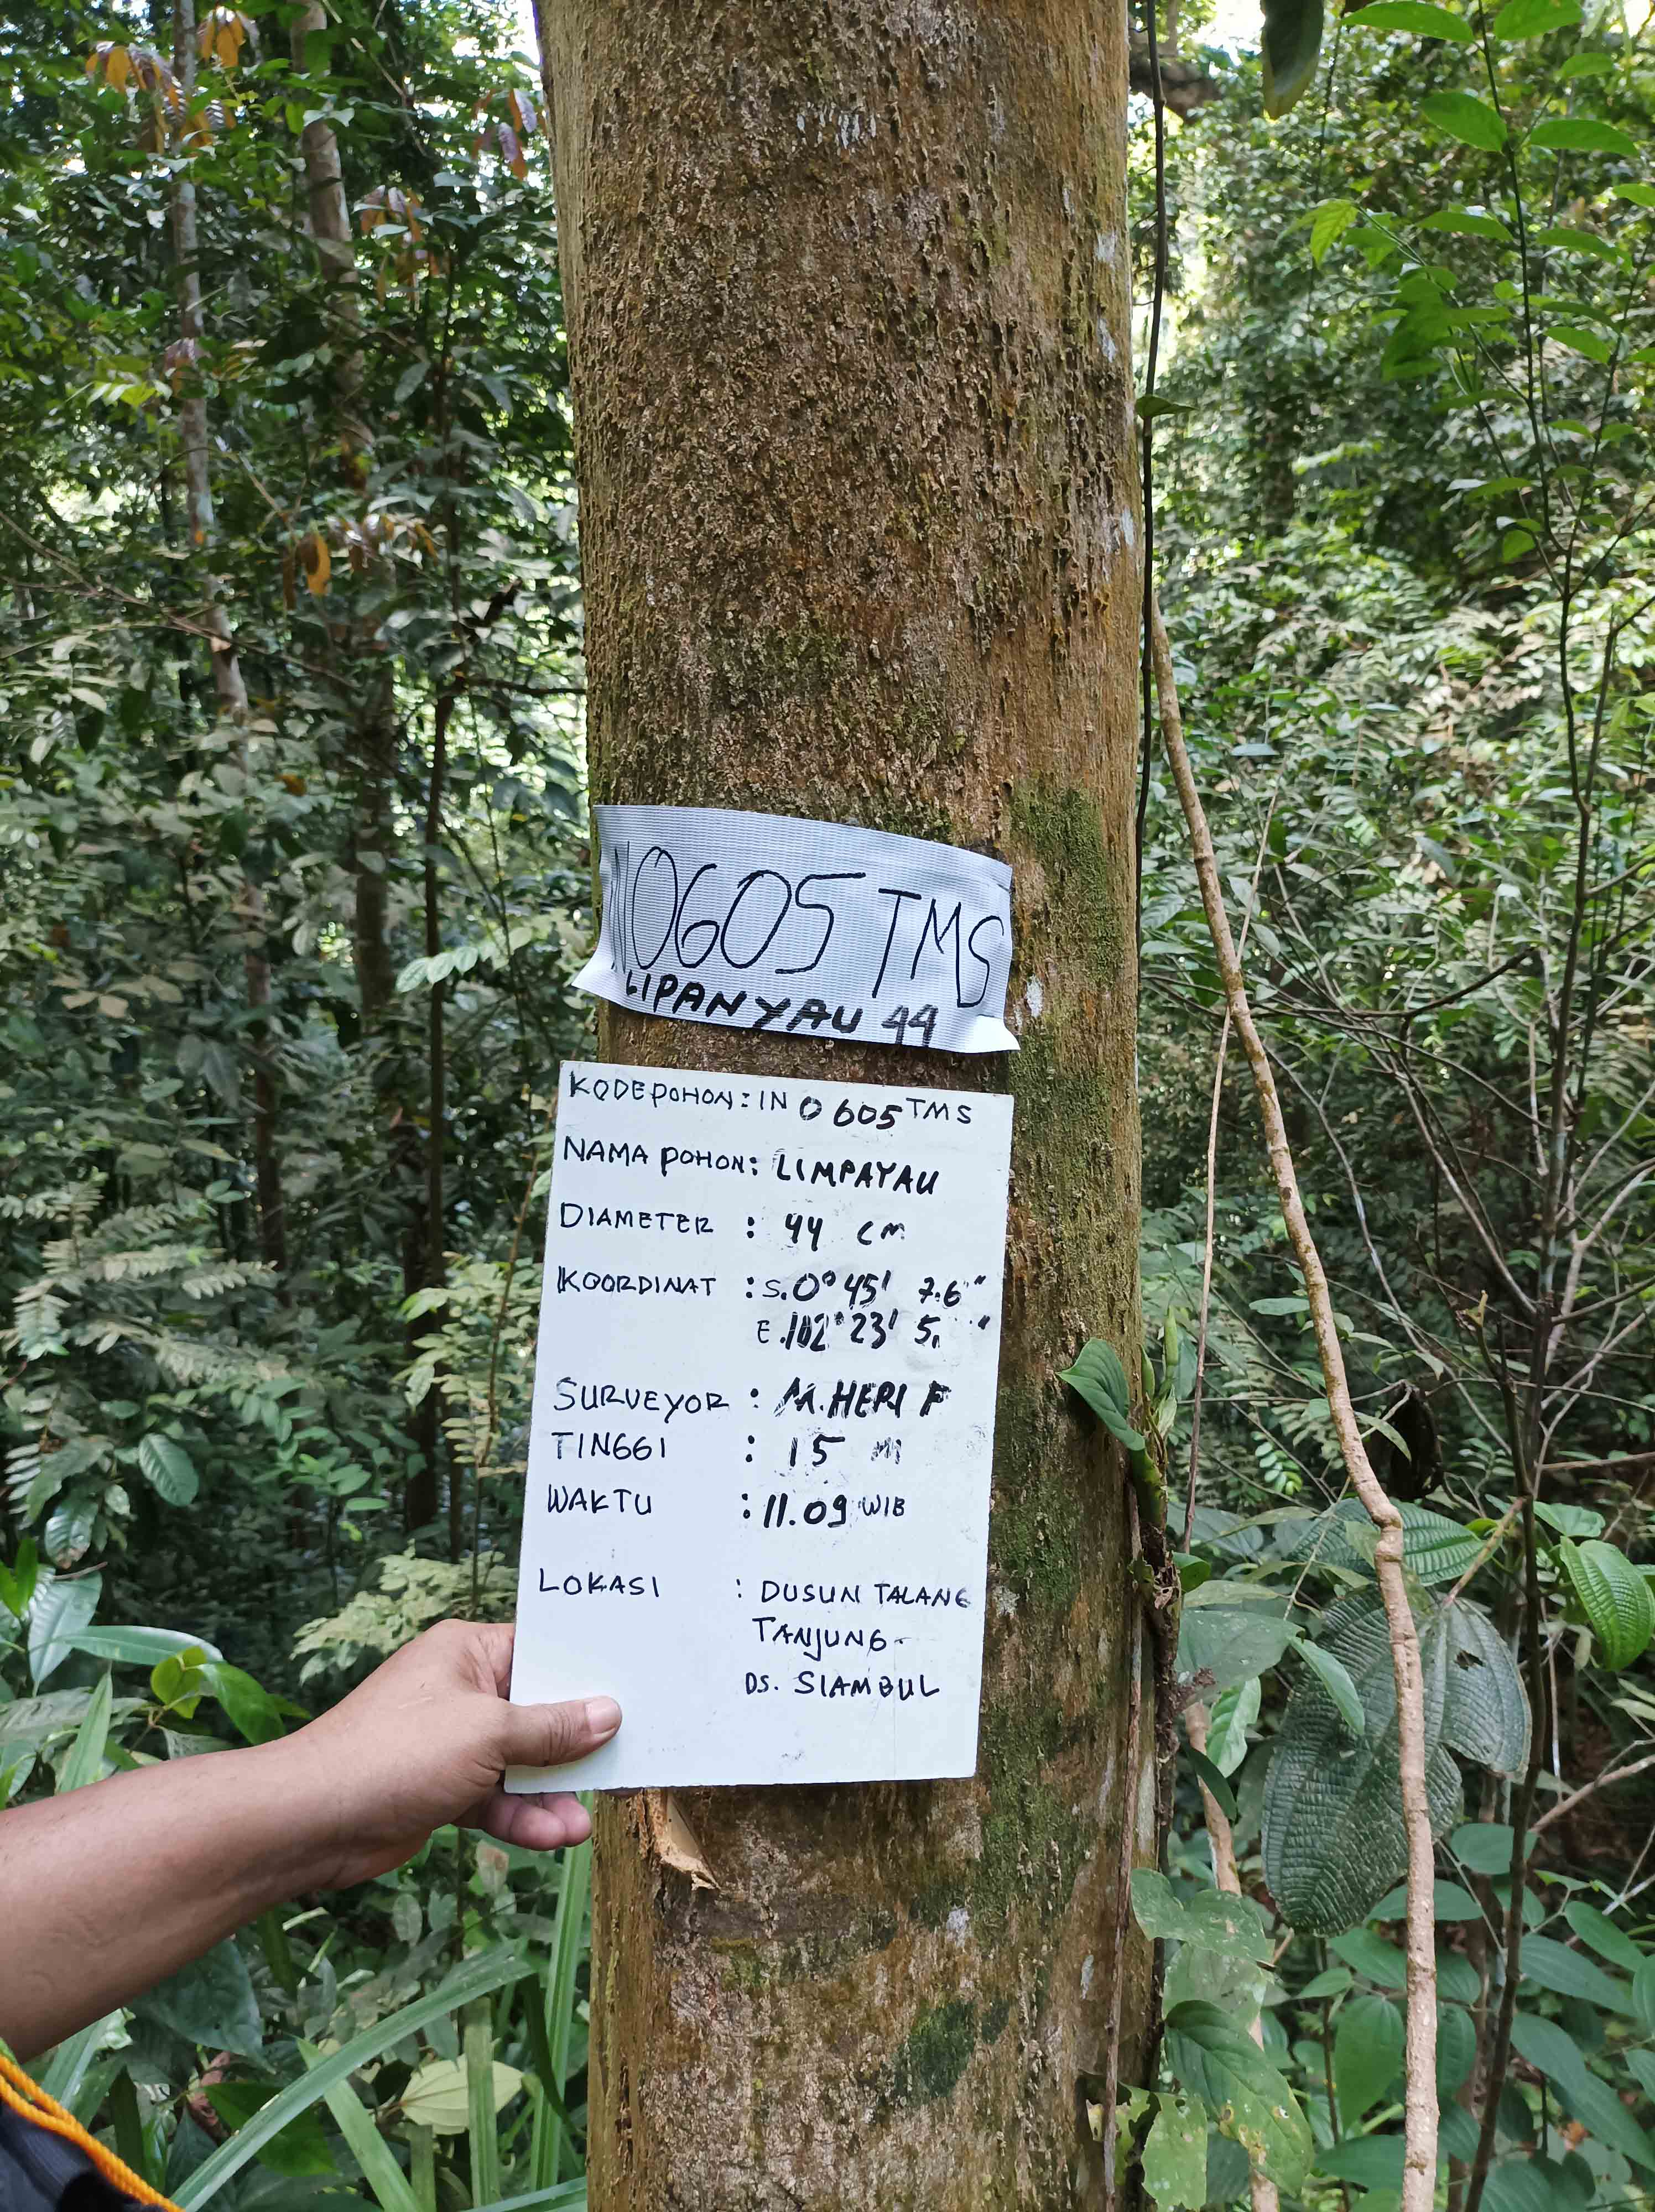 IN0605 TMS
LIPANYAU 44
KODE POHON: IN 0605 TMS
NAMA POHON: LIMPAYAU
DIAMETER : 44 CM
KOORDINAT : S. 0° 45' 7.6"
E. 102° 23' 5. "
SURVEYOR : M. HERI F
TINGGI : 15 m
WAKTU : 11.09 WIB
LOKASI : DUSUN TALANG
TANJUNG-
DS. SIAMBUL